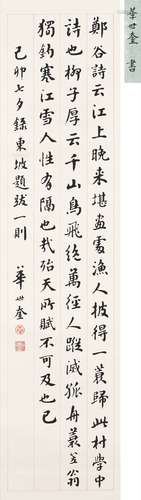 華世奎書
鄭谷詩云江上晚來堪畫處漁人披得一蓑歸此村學中
詩也柳子厚云千山鳥飛絕萬徑人蹤滅孤舟蓑笠翁
獨釣寒江雪人性有隔也哉殆天所賦不可及也已
己卯七夕錄東坡題跋一則
華世奎